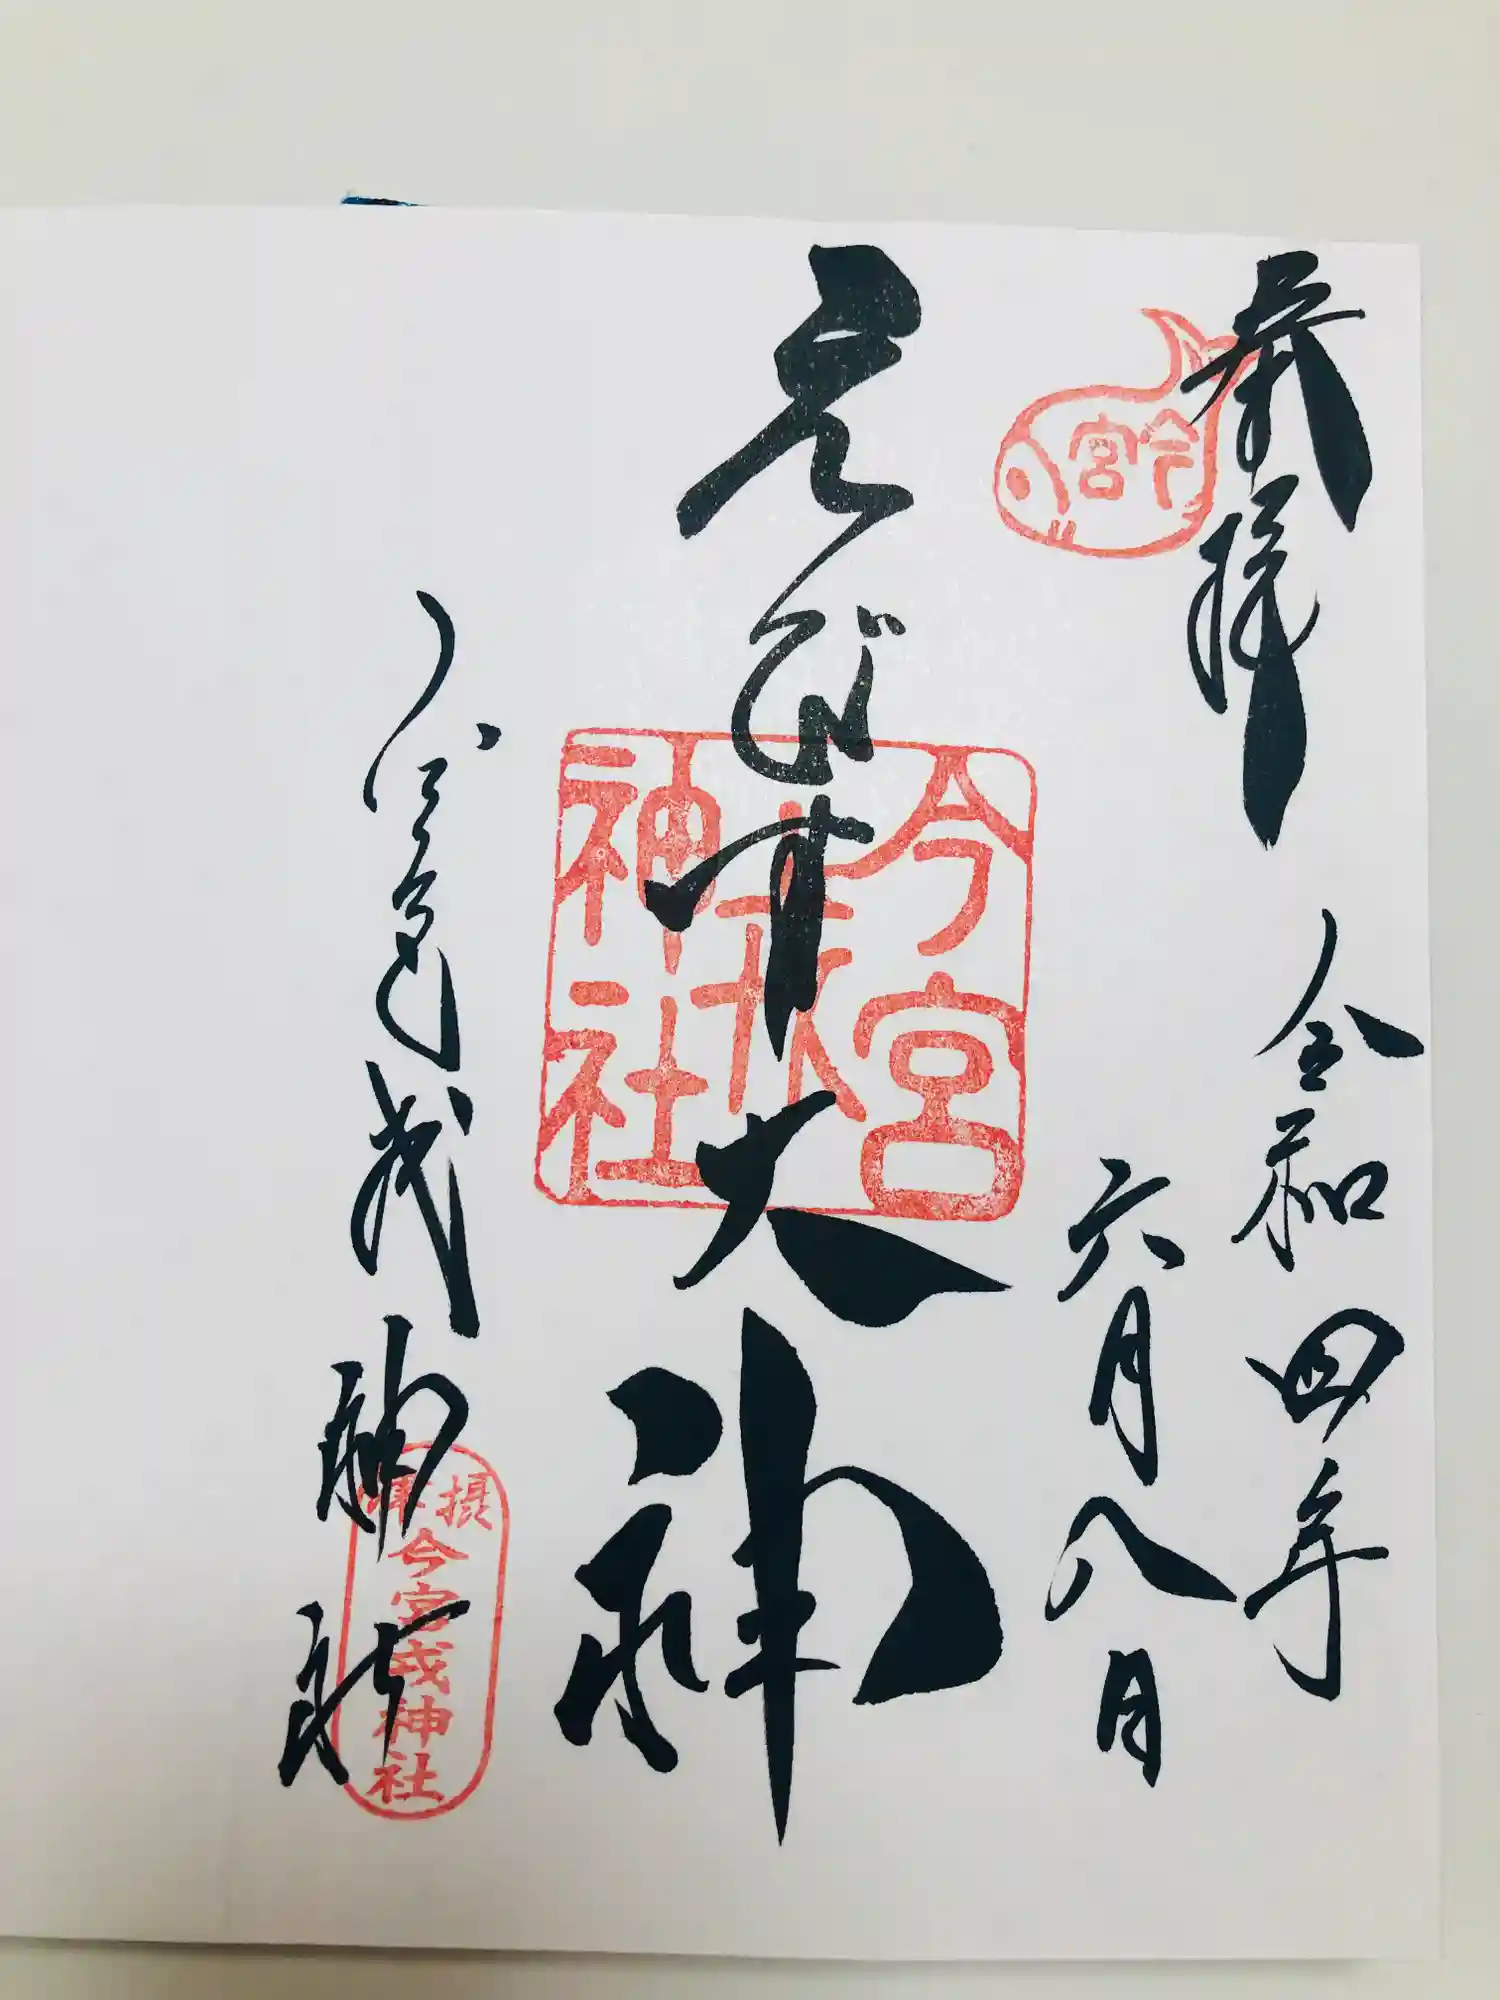 奉拝
今宮
令和四年
六月八日
えびす大神
今宮戎神社
今宮戎神社
摂津
今宮戎神社